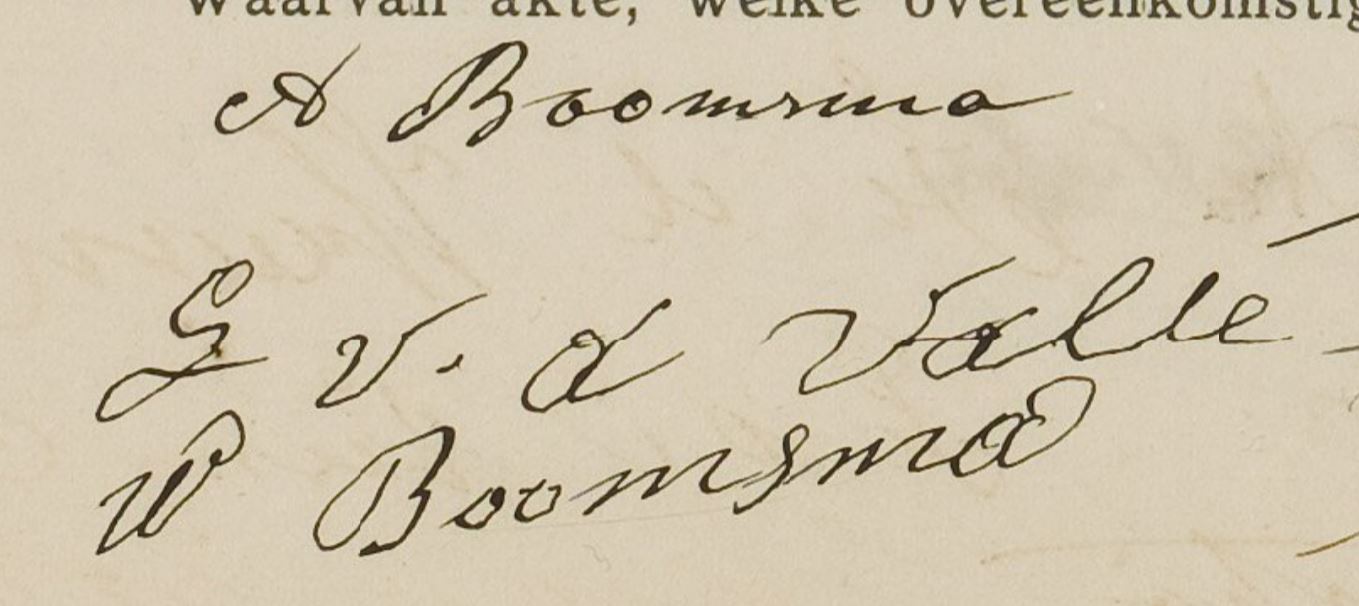 waarvan akte, welke overeenkomstig
A Boomsma
G v. d Valle
W Boomsma